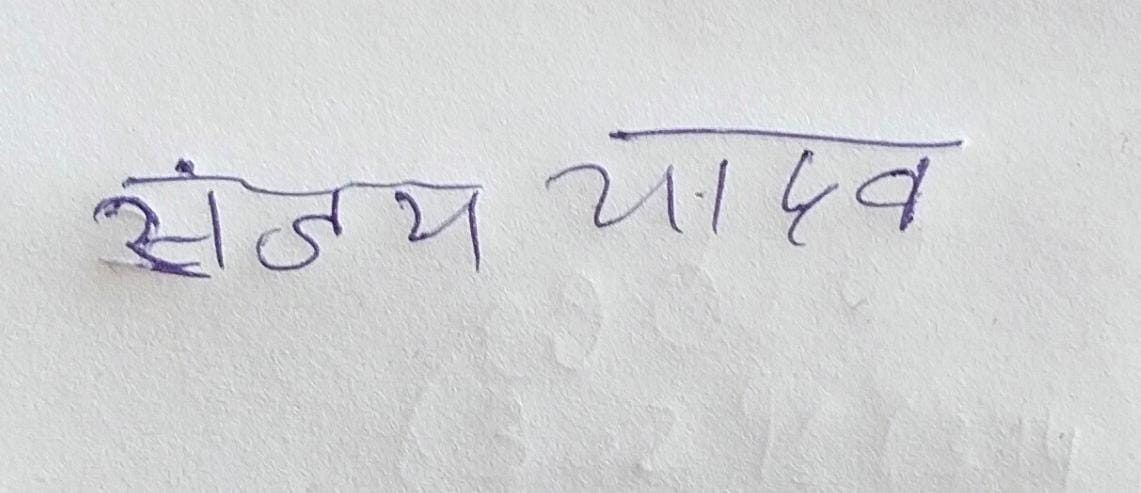 संजय यादव